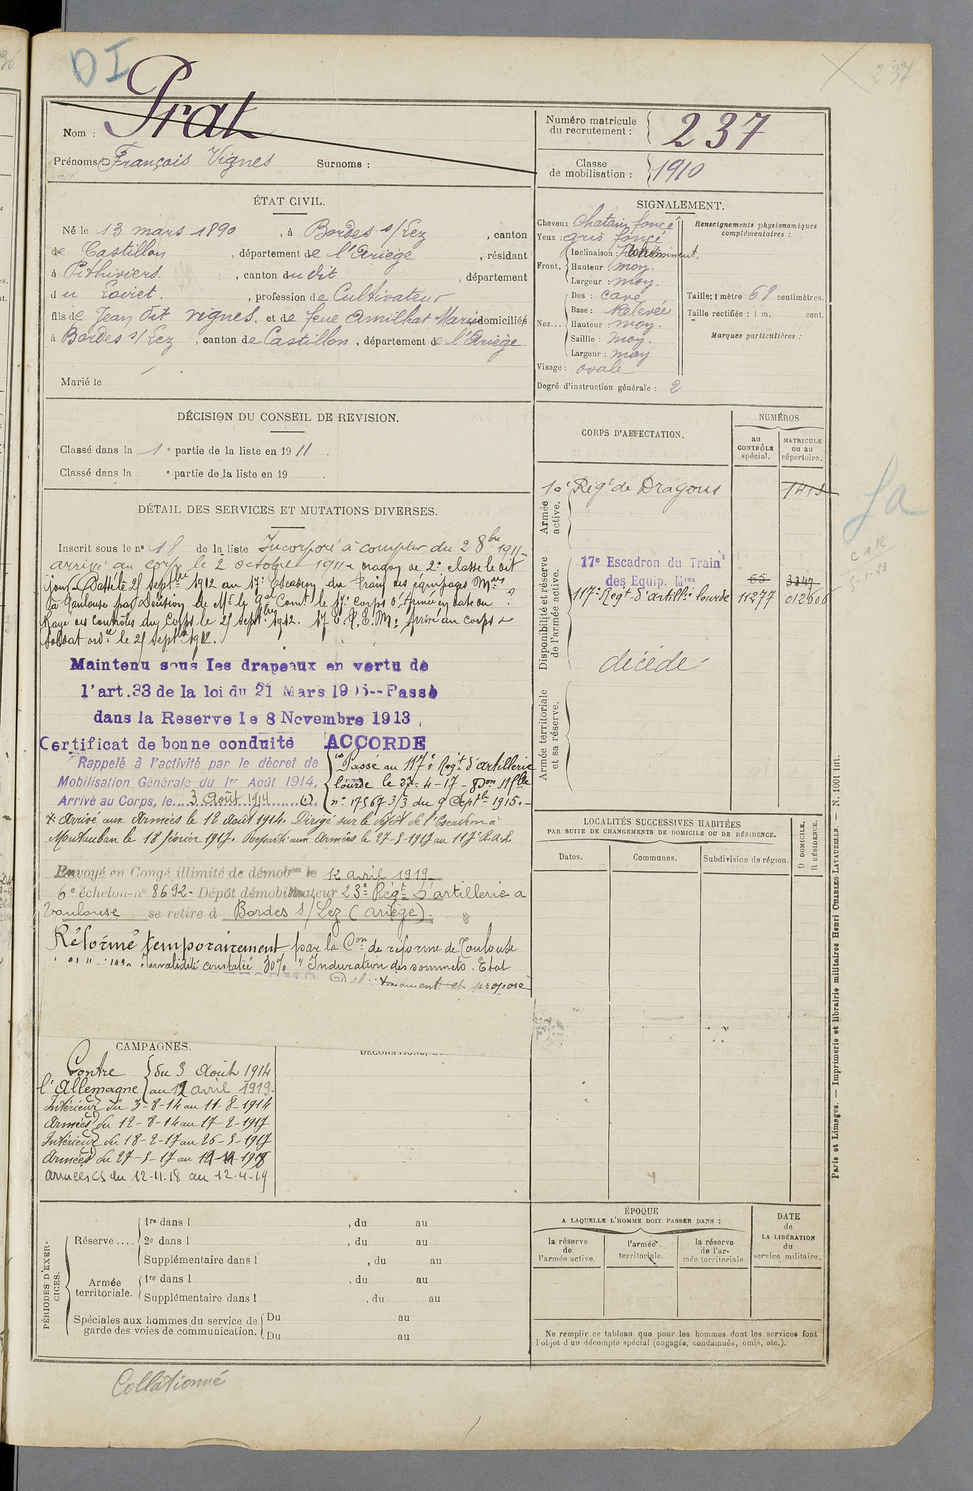 DI
237
Nom : Prat
Prénoms : François Vignes Surnoms :
Numéro matricule du recrutement : 237
Classe de mobilisation : 1910
ÉTAT CIVIL.
Né le 13 mars 1890, à Bordes s/Lez, canton
de Castillon, département de l'Ariège, résidant
à Pithiviers, canton du dit, département
du Loiret, profession de Cultivateur
fils de Jean dit Vignes, et de feue Amilhat Marie domiciliés
à Bordes s/Lez, canton de Castillon, département de l'Ariège
Marié le
SIGNALEMENT.
Cheveux Chatain foncé
Yeux : gris foncé
Front. Inclinaison :
Hauteur : moy.
Largeur : moy.
Nez... Dos : cavé
Base : Relevée
Hauteur : moy.
Saillie : moy.
Largeur : moy
Visage : ovale
Renseignements physionomiques complémentaires :
Taille : 1 mètre 68 centimètres.
Taille rectifiée : 1 m. cent.
Marques particulières :
Degré d'instruction générale : 2
DÉCISION DU CONSEIL DE REVISION.
Classé dans la 1e partie de la liste en 1911
Classé dans la e partie de la liste en 19
DÉTAIL DES SERVICES ET MUTATIONS DIVERSES.
Inscrit sous le no 18 de la liste Incorporé à compter du 2 8bre 1911
arrivé au corps le 2 octobre 1911 dragon de 2e classe le dit
jour. Passé le 21 septbre 1912 au 17e Escadron du Train des équipages Mres
à Toulouse par décision de Mr le Gal Comt le 17e Corps d'Armée en date du
Rayé des contrôles du Corps le 21 septbre 1912. 17e E.T.E.M. Arrivé au corps
soldat ord. le 21 septbre 1912.
Maintenu sous les drapeaux en vertu de
l'art.33 de la loi du 21 Mars 1905--Passé
dans la Reserve le 8 Novembre 1913
Certificat de bonne conduite ACCORDE
Rappelé à l'activité par le décret de
Mobilisation Générale du 1er Août 1914,
Arrivé au Corps, le 3 Août 1914
Passé au 117e Regt d'artillerie
lourde le 27-4-17
no 17567-3/3 du 9 Septbre 1915.
Arrivé aux Armées le 12 août 1914. Dirigé sur le dépôt de l'Escadron à
Montauban le 18 février 1917. Reparti aux Armées le 27-5-1917 au 117e R.A.L.
Envoyé en Congé illimité de démobon le 12 avril 1919
6e échelon no 8692 - Dépôt démobilisateur 23e Regt d'artillerie à
Toulouse se retire à Bordes s/Lez (Ariège).
Réformé temporairement par la Con de réforme de Toulouse
Invalidité constatée 30% "Induration des sommets. Etat
et proposé
CORPS D'AFFECTATION.
NUMÉROS
au CONTRÔLE spécial.
MATRICULE ou au répertoire.
Armée active.
10e Regt de Dragons
Disponibilité et réserve de l'armée active.
17e Escadron du Train
des Equip. Mres 65 3349
117e Regt d'artillie lourde 11277
décédé
Armée territoriale et sa réserve.
LOCALITÉS SUCCESSIVES HABITÉES
PAR SUITE DE CHANGEMENTS DE DOMICILE OU DE RÉSIDENCE.
Dates. Communes. Subdivision de région. D DOMICILE. R RÉSIDENCE.
CAMPAGNES.
Contre l'Allemagne du 3 Août 1914
au 12 avril 1919
Intérieur du 3-8-14 au 11-8-1914
Armées du 12-8-14 au 17-2-1917
Intérieur du 18-2-17 au 26-5-1917
Armées du 27-5-17 au 1918
Armées du 12.11.18 au 12-4-19
PÉRIODES D'EXERCICES.
Réserve....
1re dans l , du au
2e dans l , du au
Supplémentaire dans l , du au
Armée territoriale.
1re dans l , du au
Supplémentaire dans l , du au
Spéciales aux hommes du service de garde des voies de communication.
Du au
Du au
ÉPOQUE
A LAQUELLE L'HOMME DOIT PASSER DANS :
la réserve de l'armée active.
l'armée territoriale.
la réserve de l'armée territoriale
DATE de LA LIBÉRATION du service militaire.
Ne remplir ce tableau que pour les hommes dont les services font
l'objet d'un décompte spécial (engagés, condamnés, omis, etc.).
Paris et Limoges. — Imprimerie et librairie militaires Henri CHARLES-LAVAUZELLE. — N. 1001 int.
Collationné